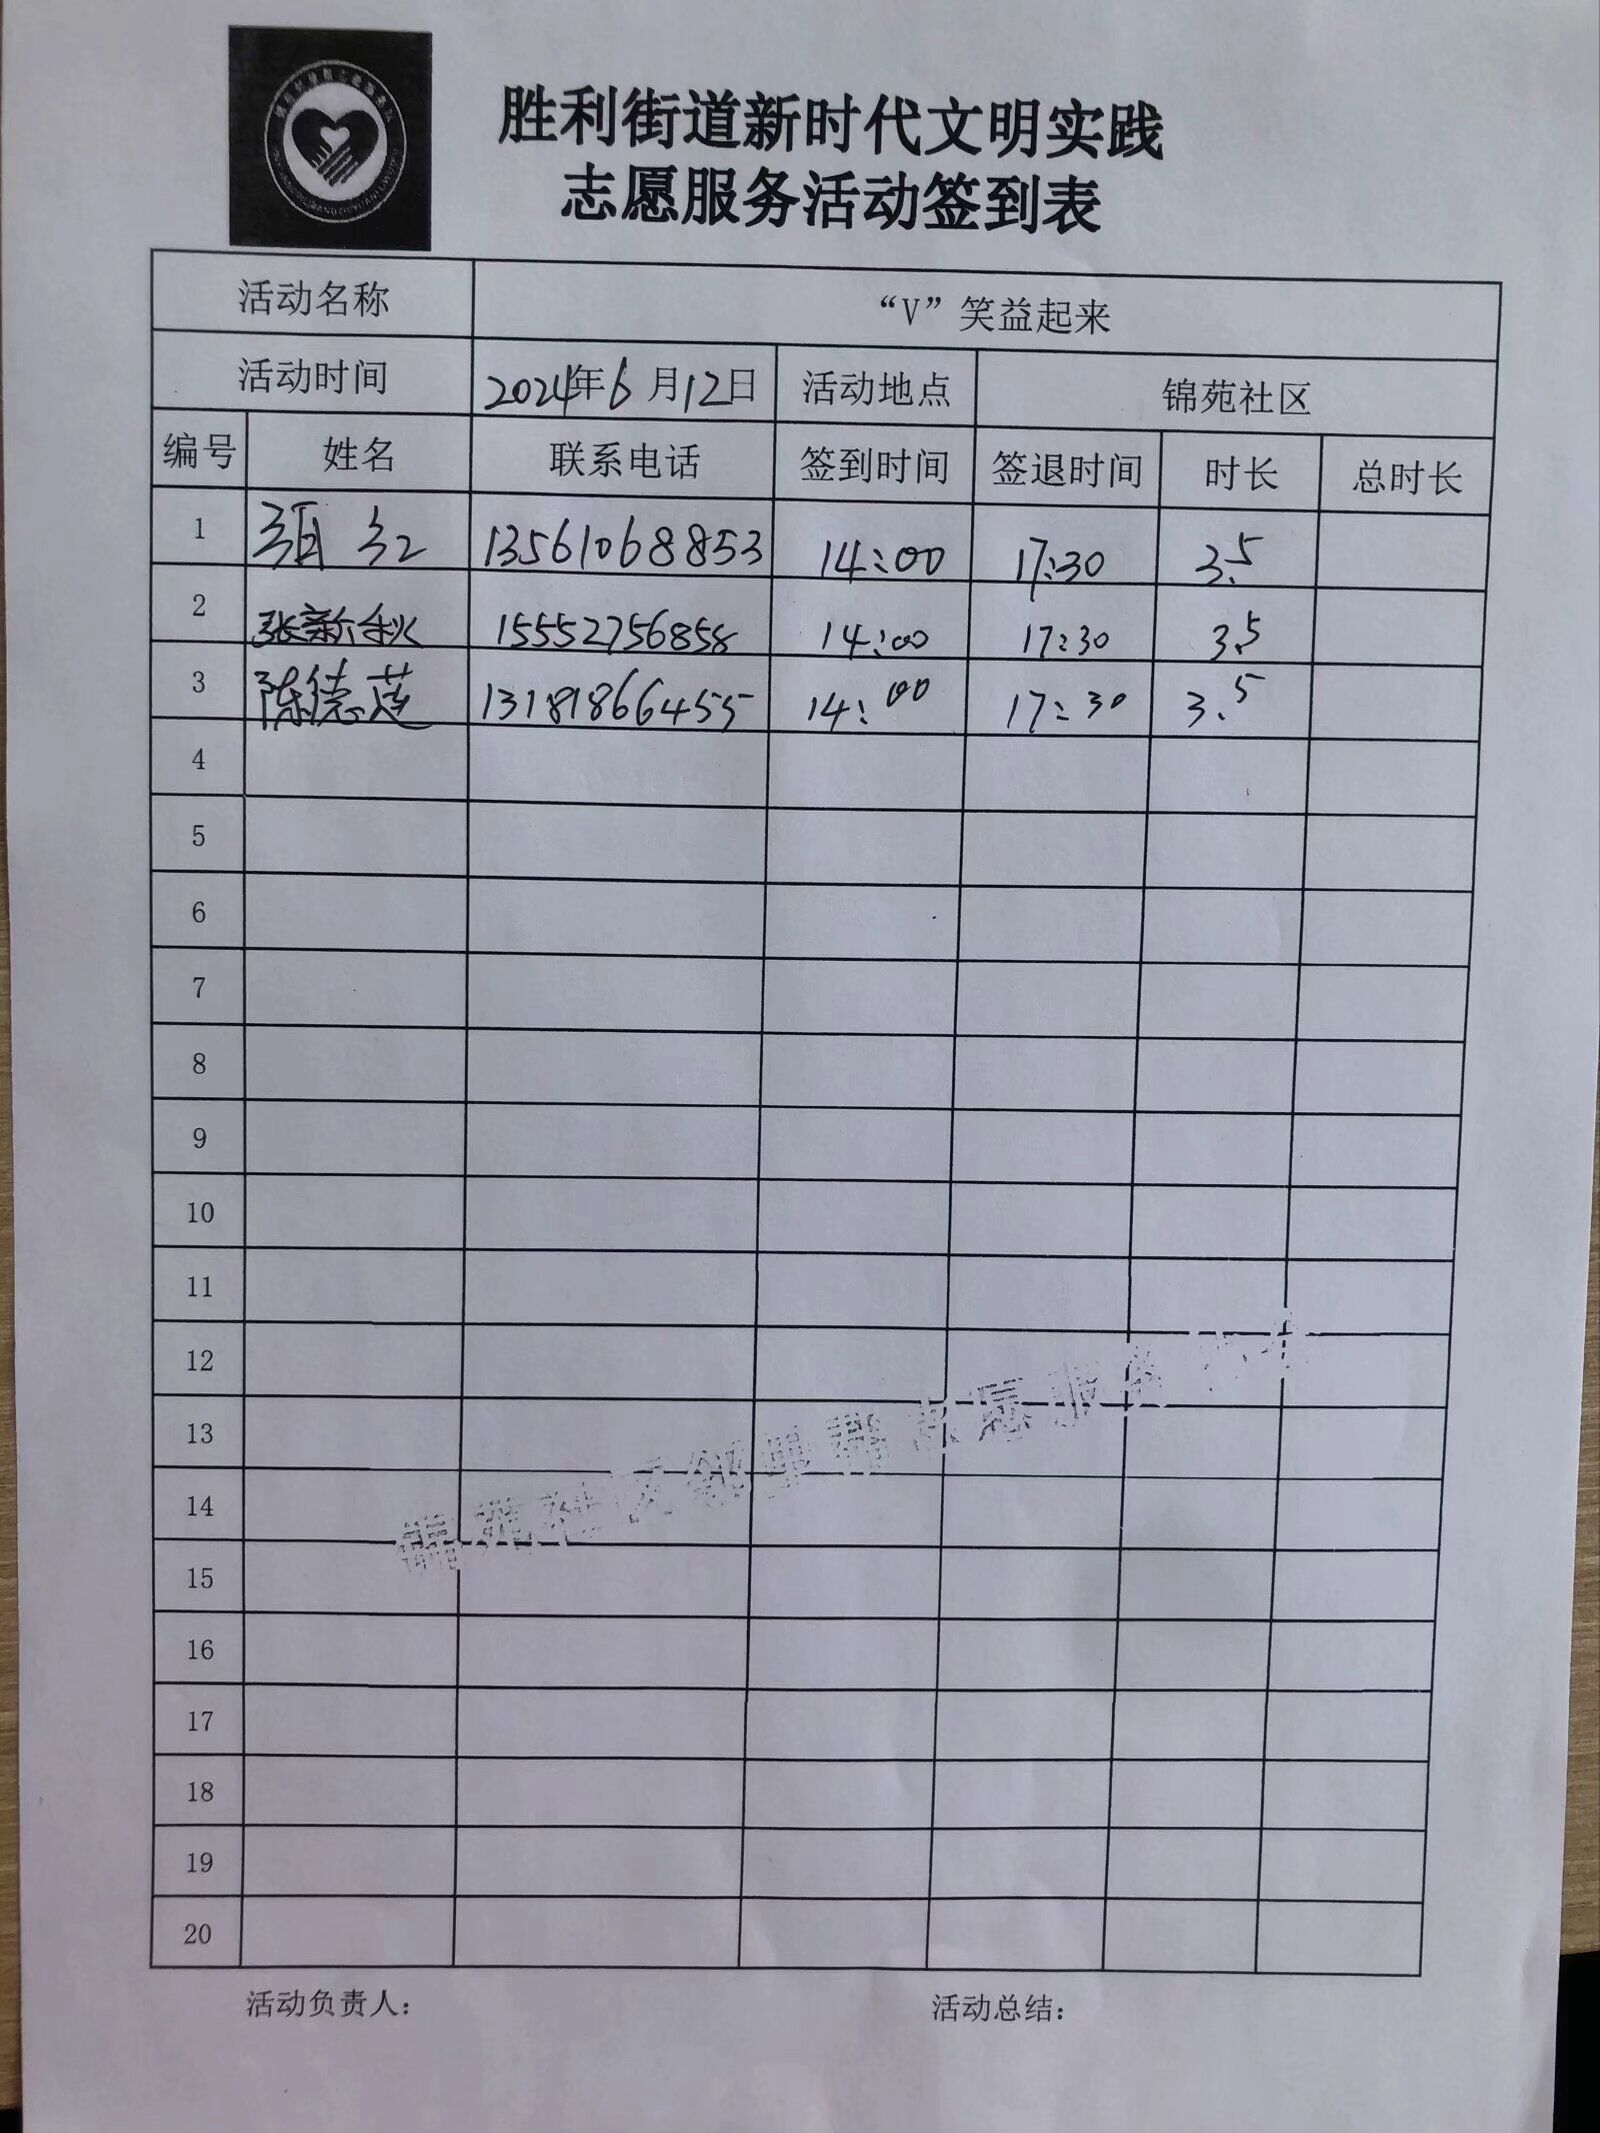 胜利街道新时代文明实践
志愿服务活动签到表
活动名称 “V”笑益起来
活动时间 2024年6月12日 活动地点 锦苑社区
编号 姓名 联系电话 签到时间 签退时间 时长 总时长
1 红 13561068853 14:00 17:30 3.5
2 张新秋 15552756858 14:00 17:30 3.5
3 陈德莲 13181866455 14:00 17:30 3.5
4
5
6
7
8
9
10
11
12
13
14
15
16
17
18
19
20
锦苑社区邻里帮志愿服务
活动负责人： 活动总结：